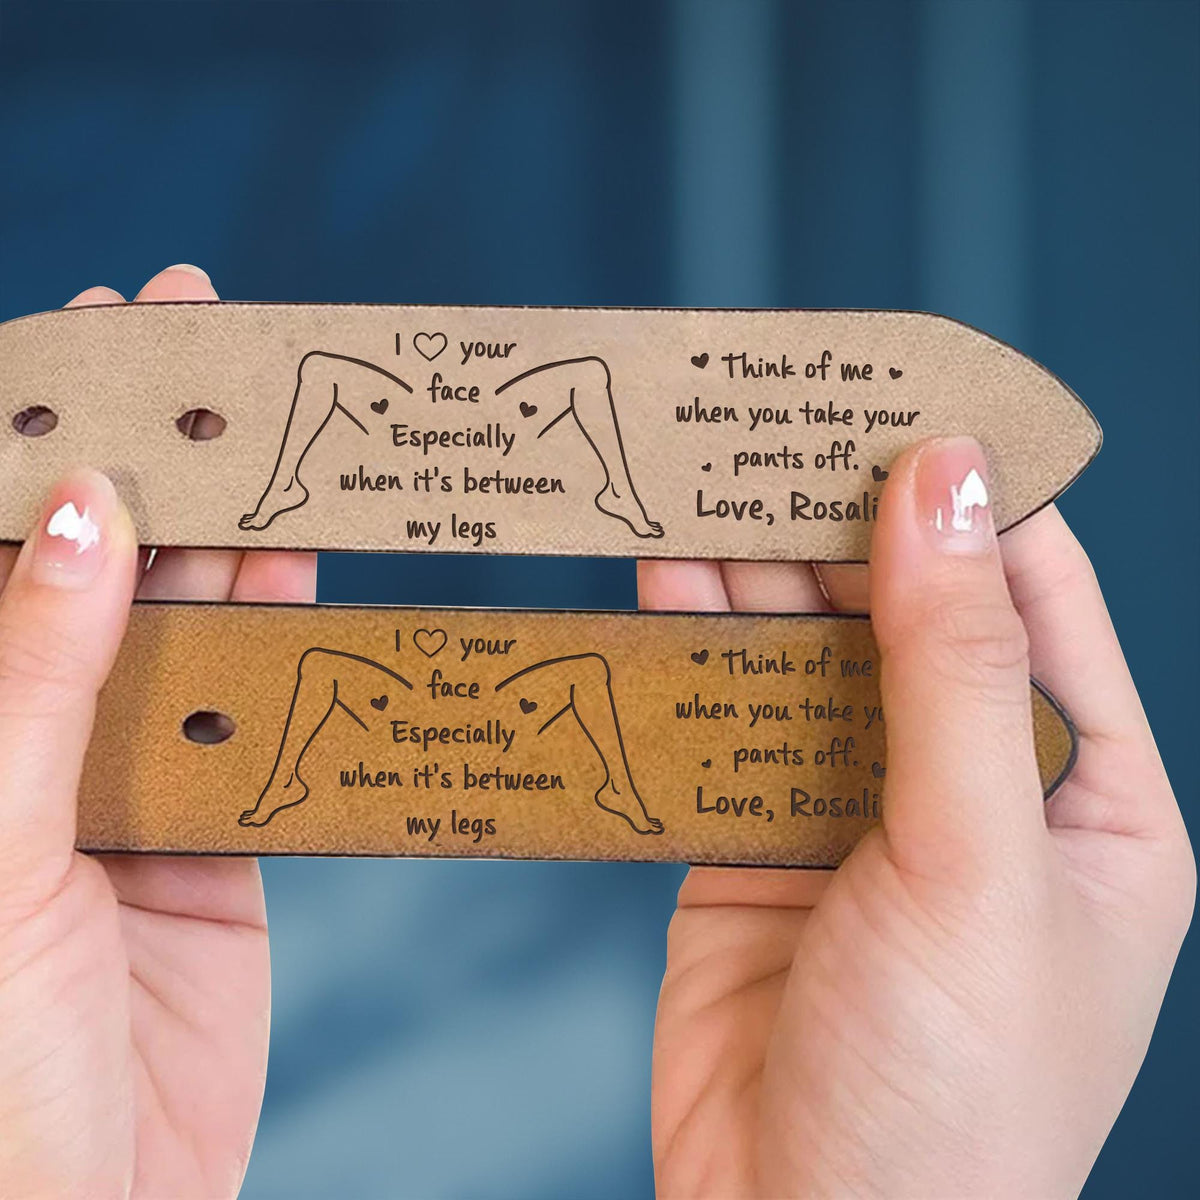 I ♡ your
face
Especially
when it's between
my legs
Think of me
when you take your
pants off.
Love, Rosali
I ♡ your
face
Especially
when it's between
my legs
Think of me
when you take
pants off.
Love, Rosali